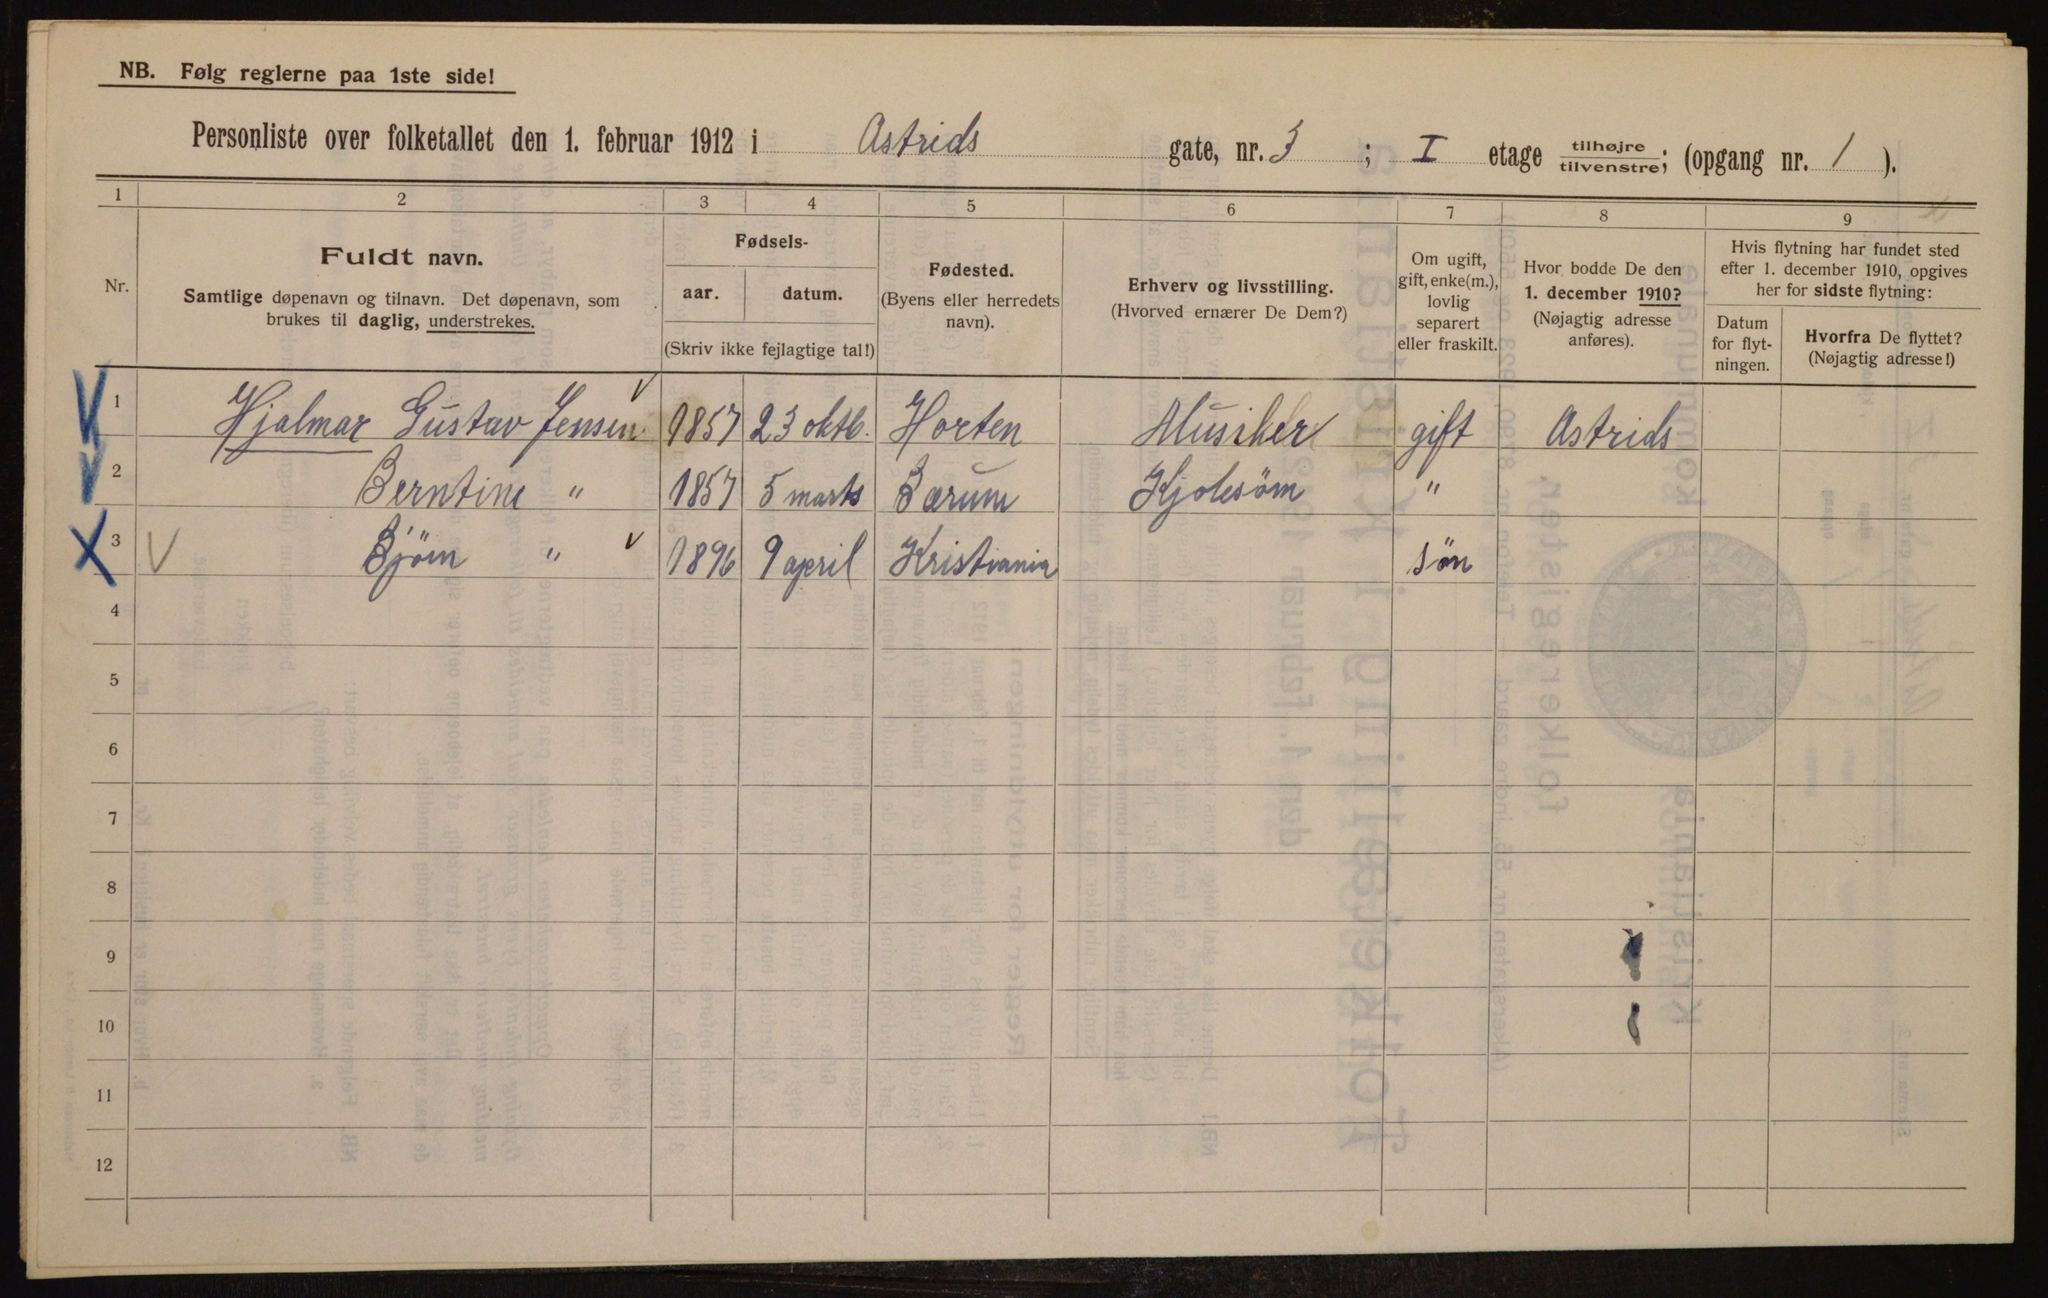 NB. Følg reglerne paa 1ste side!
Personliste over folketallet den 1. februar 1912 i Astrids gate, nr. 3 ; I etage tilhøjre/tilvenstre; (opgang nr. 1 ).
1 2 3 4 5 6 7 8 9
Nr.
Fuldt navn.
Samtlige døpenavn og tilnavn. Det døpenavn, som
brukes til daglig, understrekes.
Fødsels-
aar. datum.
(Skriv ikke fejlagtige tal!)
Fødested.
(Byens eller herredets
navn).
Erhverv og livsstilling.
(Hvorved ernærer De Dem?)
Om ugift,
gift, enke(m.),
lovlig
separert
eller fraskilt.
Hvor bodde De den
1. december 1910?
(Nøjagtig adresse
anføres).
Hvis flytning har fundet sted
efter 1. december 1910, opgives
her for sidste flytning:
Datum
for flyt-
ningen.
Hvorfra De flyttet?
(Nøjagtig adresse!)
1 Hjalmar Gustav Jensen 1857 23 oktb. Horten Musiker gift Astrids
2 Berntine " 1857 5 marts Bærum Kjolesøm "
3 Bjørn " 1896 9 april Kristiania søn
4
5
6
7
8
9
10
11
12